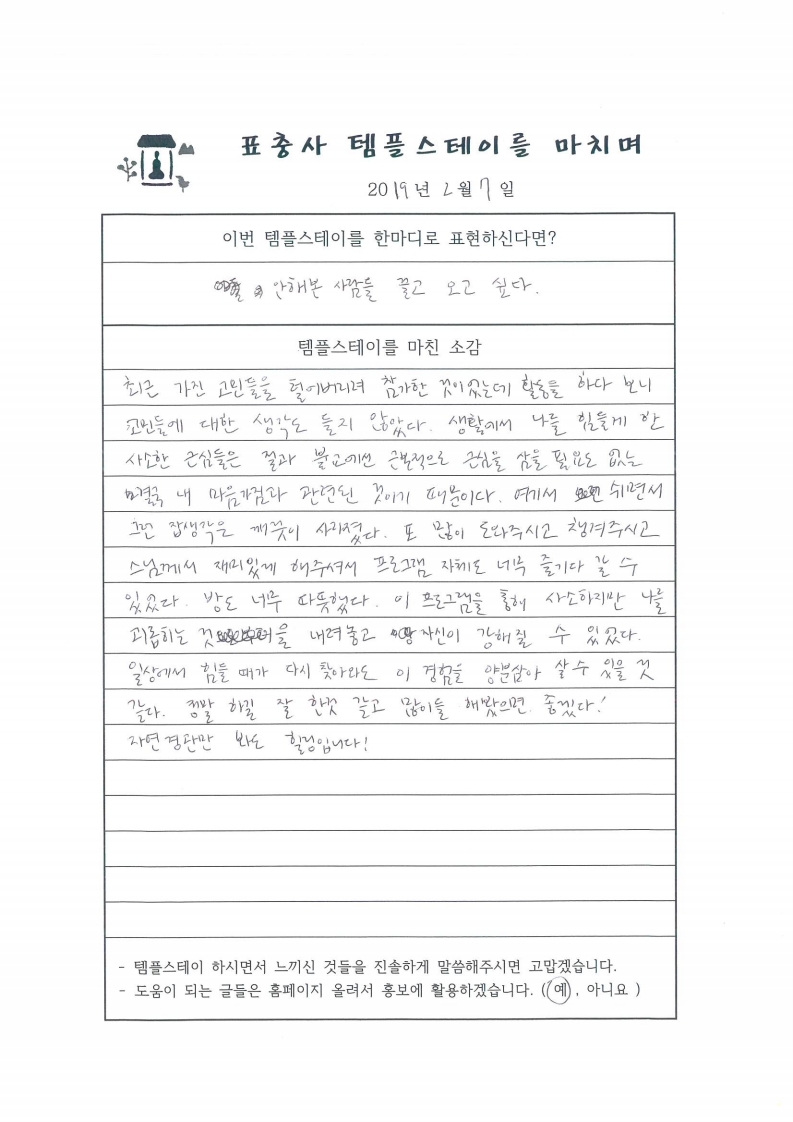 표충사 템플스테이를 마치며
2019년 2월 7일
이번 템플스테이를 한마디로 표현하신다면?
안해본 사람들 끌고 오고 싶다.
템플스테이를 마친 소감
최근 가진 고민들을 털어버리려 참가한 것이었는데 활동들 하다 보니
고민들에 대한 생각도 들지 않았다. 생활에서 나를 힘들게 한
사소한 근심들은 절과 불교에선 근본적으로 근심을 삼을 필요도 없는
결국 내 마음가짐과 관련된 것이기 때문이다. 여기서 쉬면서
그런 잡생각은 깨끗이 사라졌다. 또 많이 도와주시고 챙겨주시고
스님께서 재미있게 해주셔서 프로그램 자체도 너무 즐기다 갈 수
있었다. 방도 너무 따뜻했다. 이 프로그램을 통해 사소하지만 나를
괴롭히는 것을 내려놓고 자신이 강해질 수 있었다.
일상에서 힘들 때가 다시 찾아와도 이 경험을 양분삼아 살 수 있을 것
같다. 정말 하길 잘 한것 같고 많이들 해봤으면 좋겠다!
자연경관만 봐도 힐링입니다!
- 템플스테이 하시면서 느끼신 것들을 진솔하게 말씀해주시면 고맙겠습니다.
- 도움이 되는 글들은 홈페이지 올려서 홍보에 활용하겠습니다. ( 예 , 아니요 )